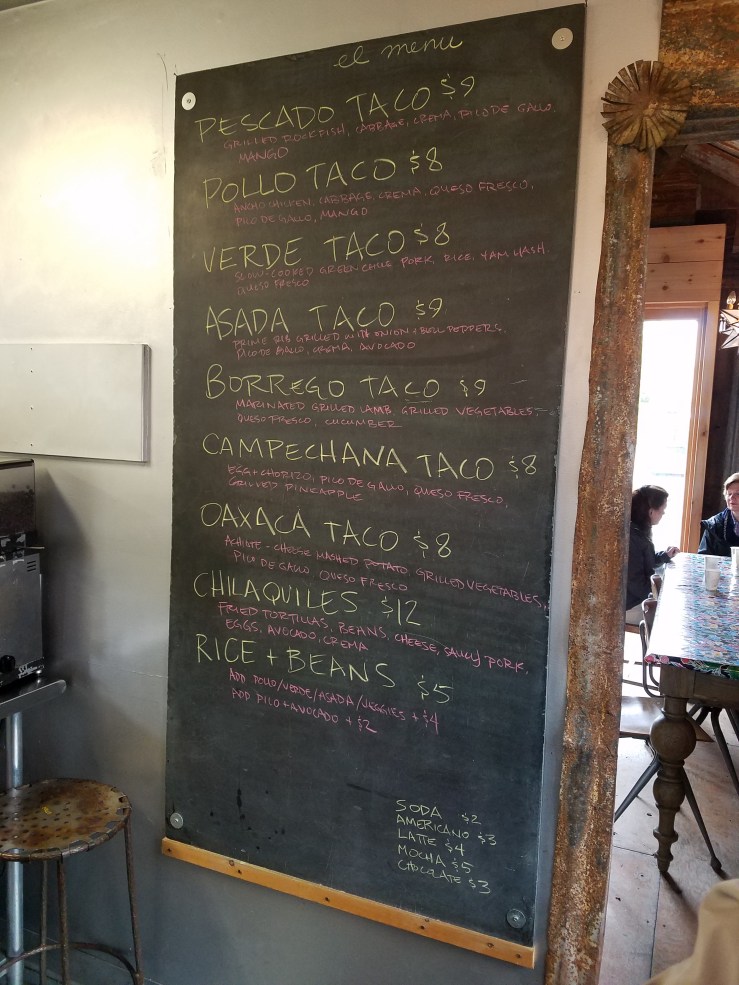 el menu
PESCADO TACO $9
GRILLED ROCKFISH, CABBAGE, CREMA, PICO DE GALLO,
MANGO
POLLO TACO $8
ANCHO CHICKEN, CABBAGE, CREMA, QUESO FRESCO,
PICO DE GALLO, MANGO
VERDE TACO $8
SLOW-COOKED GREEN CHILE PORK, RICE, YAM HASH,
QUESO FRESCO
ASADA TACO $9
PRIME RIB GRILLED WITH ONION + BELL PEPPERS,
PICO DE GALLO, CREMA, AVOCADO
BORREGO TACO $9
MARINATED GRILLED LAMB, GRILLED VEGETABLES,
QUESO FRESCO, CUCUMBER
CAMPECHANA TACO $8
EGG + CHORIZO, PICO DE GALLO, QUESO FRESCO,
GRILLED PINEAPPLE
OAXACA TACO $8
ACHIOTE - CHEESE MASHED POTATO GRILLED VEGETABLES,
PICO DE GALLO QUESO FRESCO
CHILAQUILES $12
FRIED TORTILLAS, BEANS, CHEESE, SAUCY PORK,
EGGS, AVOCADO, CREMA
RICE + BEANS $5
ADD POLLO/VERDE/ASADA/VEGGIES + $4
ADD PICO + AVOCADO + $2
SODA $2
AMERICANO $3
LATTE $4
MOCHA $5
CHOCOLATE $3